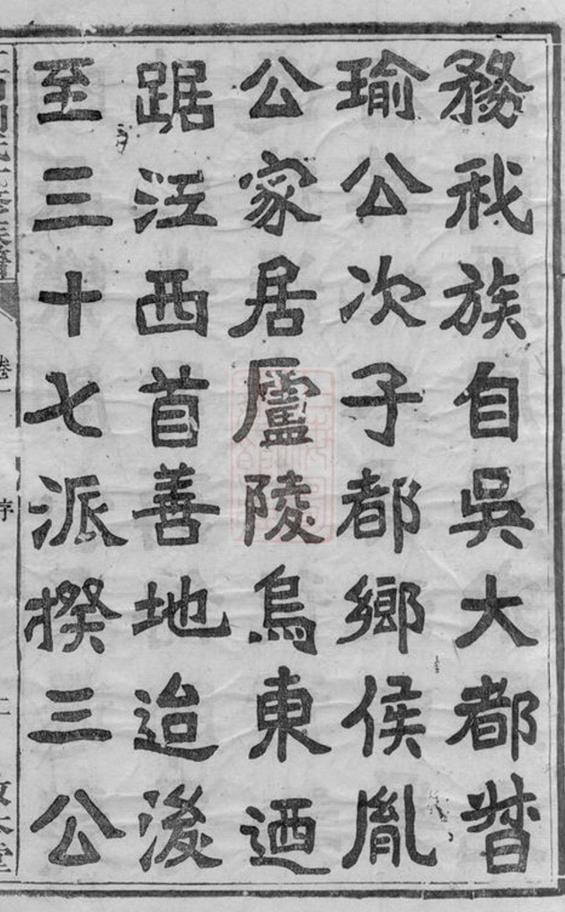 務我族自吳大都督
瑜公次子都鄉侯胤
公家居廬陵烏東迺
踞江西首善地迨後
至三十七派揆三公
卷一
序
二